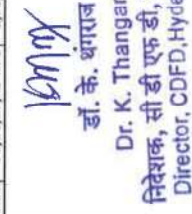 डॉ. के. थंगराज
Dr. K. Thangar
निदेशक, सी डी एफ डी,
Director, CDFD, Hyde